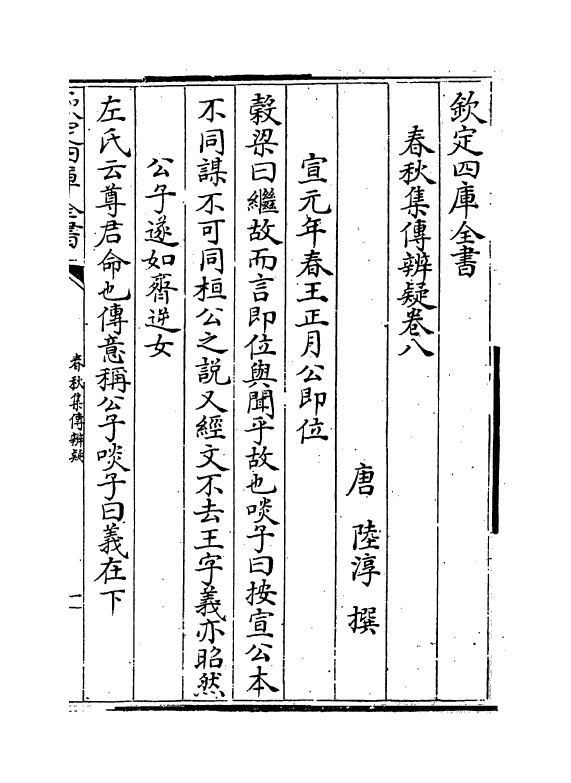 欽定四庫全書
春秋集傳辨疑卷八
唐 陸淳 撰
宣元年春王正月公即位
穀梁曰繼故而言即位與聞乎故也啖子曰按宣公本
不同謀不可同桓公之説又經文不去王字義亦昭然
公子遂如齊逆女
左氏云尊君命也傳意稱公子啖子曰義在下
欽定四庫全書
春秋集傳辨疑
一